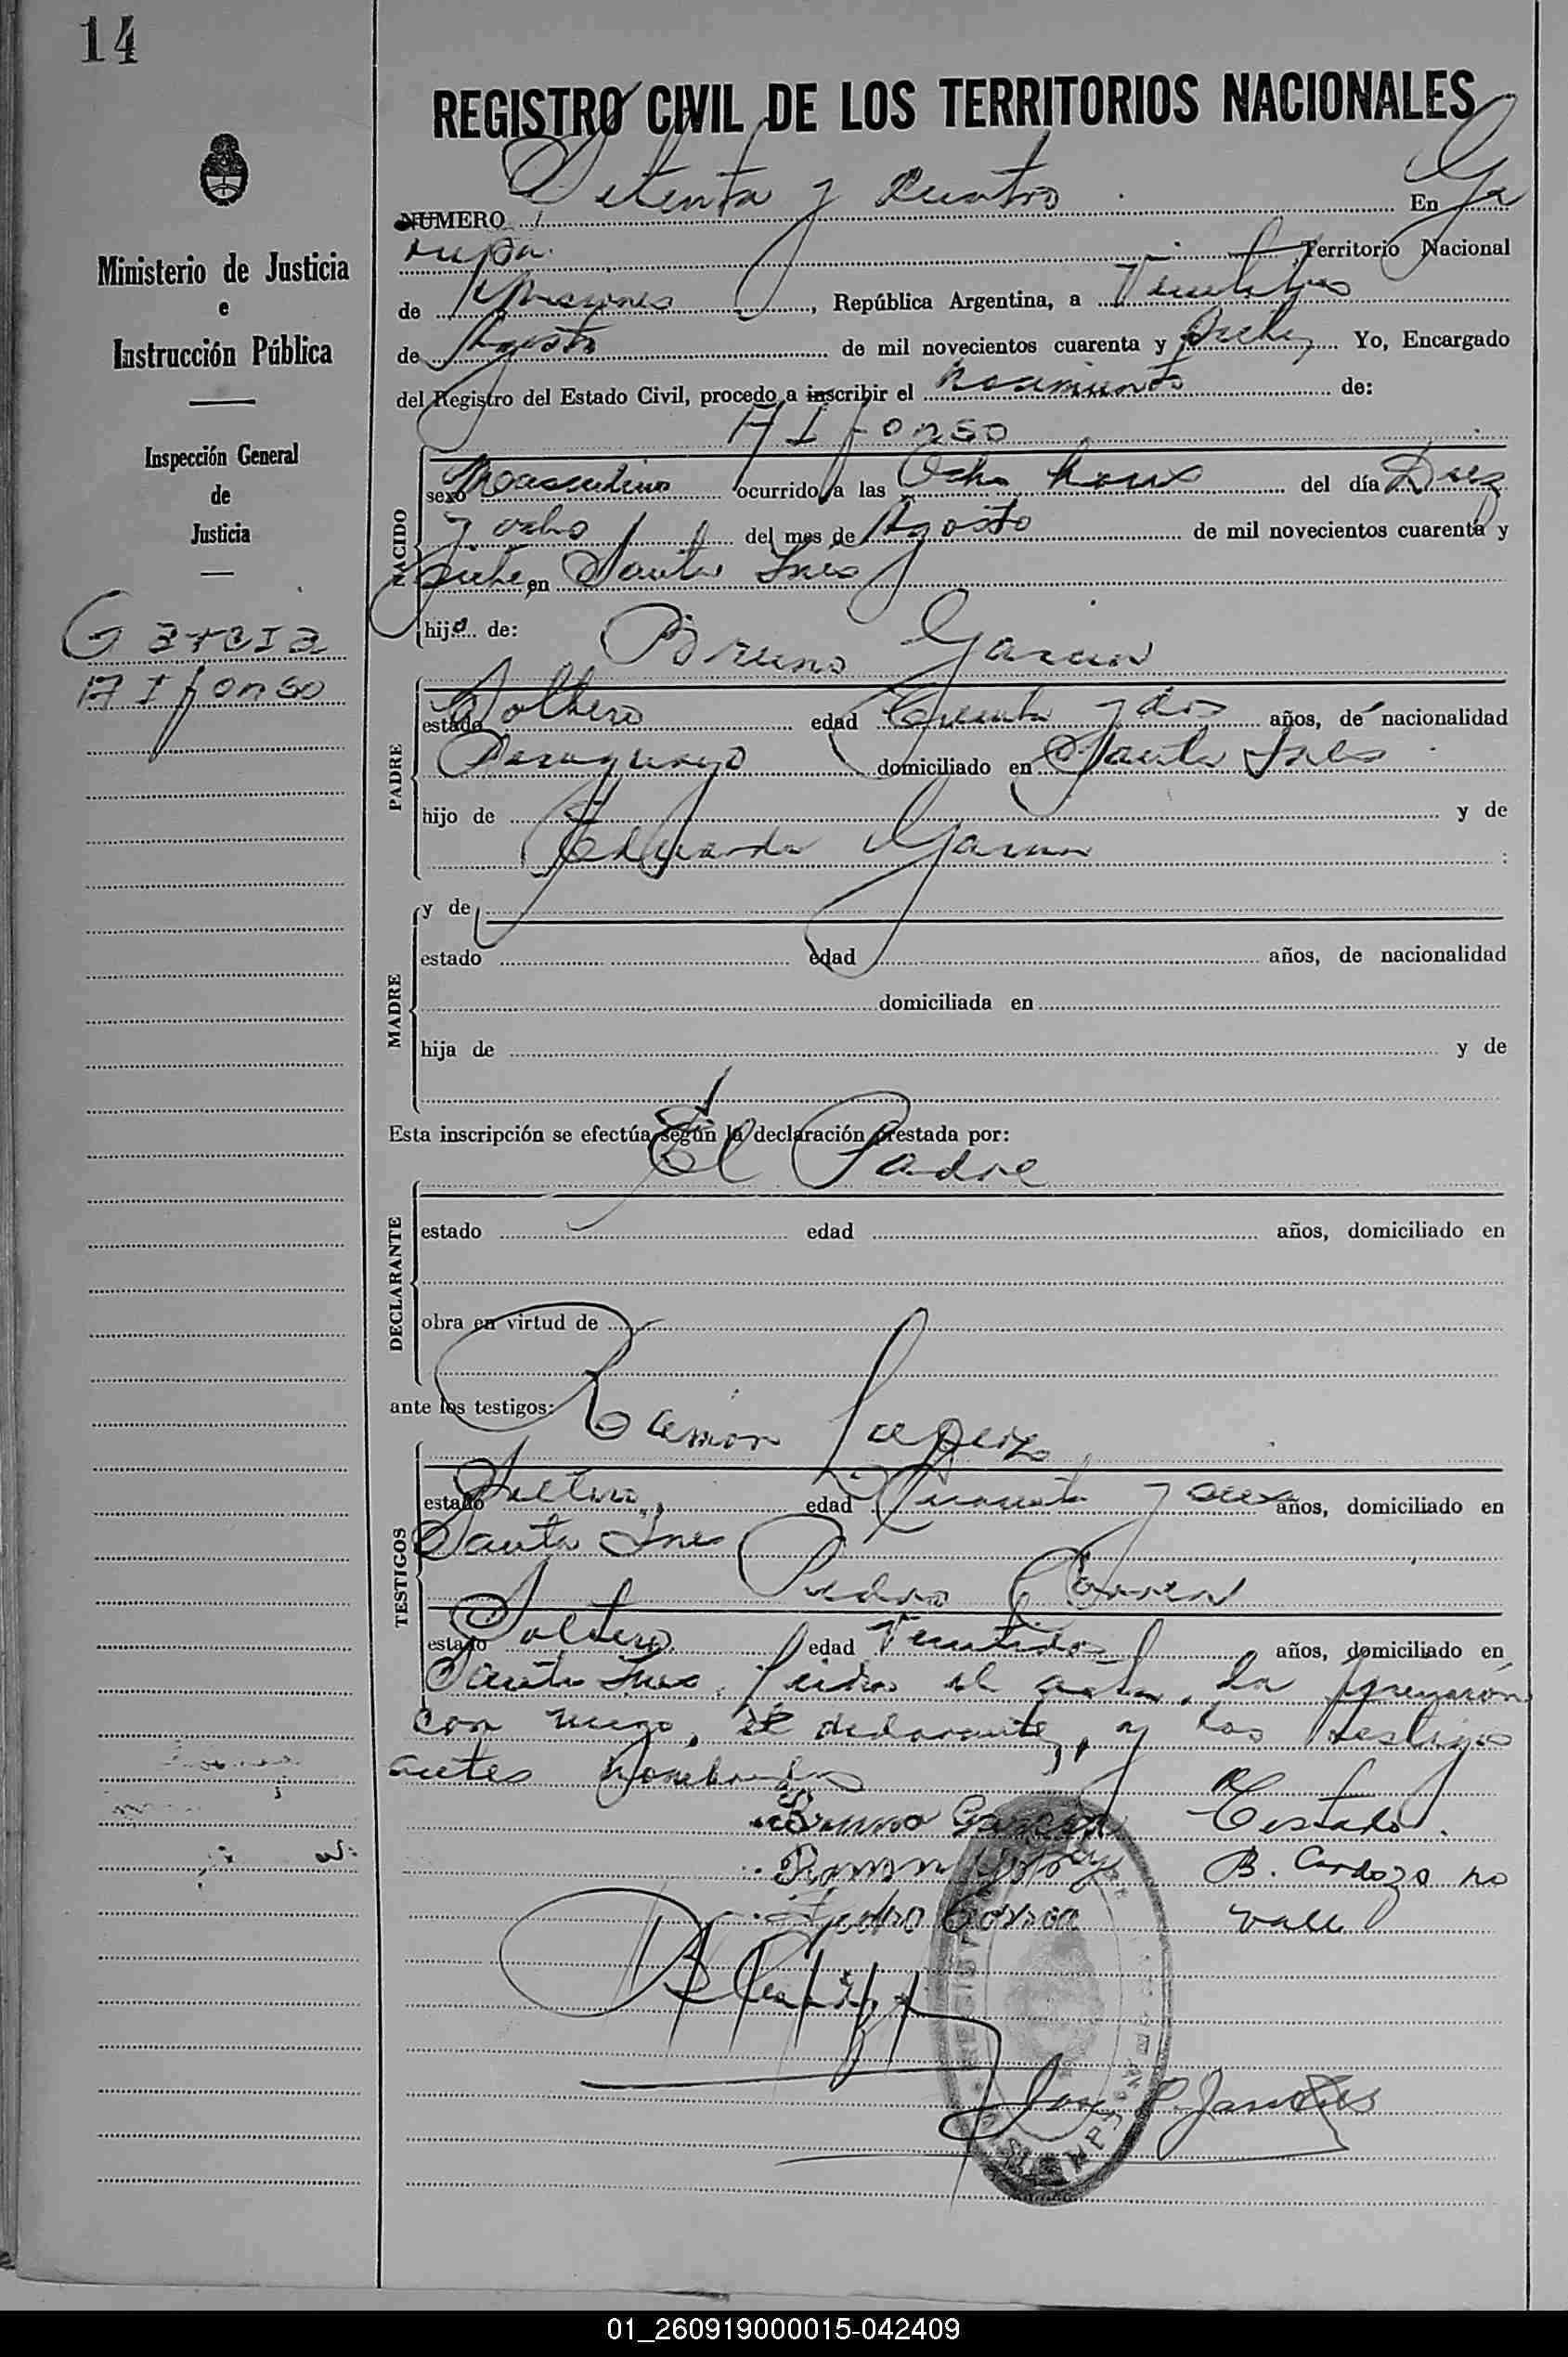 14
REGISTRO CIVIL DE LOS TERRITORIOS NACIONALES
Ministerio de Justicia
e
Instrucción Pública
Inspección General
de
Justicia
Garcia
Alfonso
NUMERO Setenta y Cuatro En Ga
rupa Territorio Nacional
de Misiones, República Argentina, a Veintitres
de Agosto de mil novecientos cuarenta y siete Yo, Encargado
del Registro del Estado Civil, procedo a inscribir el nacimiento de:
Alfonso
NACIDO
sexo Masculino ocurrido a las Ocho horas del día Diez
y ocho del mes de Agosto de mil novecientos cuarenta y
siete en Santa Ines
hijo de: Bruno Garcia
PADRE
estado Soltero edad Treinta y dos años, de nacionalidad
Paraguayo domiciliado en Santa Ines
hijo de y de
Eduarda Garcia
MADRE
y de
estado edad años, de nacionalidad
domiciliada en
hija de y de
Esta inscripción se efectúa según la declaración prestada por:
El Padre
DECLARANTE
estado edad años, domiciliado en
obra en virtud de
ante los testigos: Ramon
TESTIGOS
estado Soltero, edad años, domiciliado en
Santa Ines
Pedro Correa
estado Soltero edad Veintidos años, domiciliado en
Santa Ines. Leida el acta, la
con migo, el declarante, y los testigos
antes nombrados
Bruno Garcia Testado.
Ramon B. Cardozo no
Pedro Correa vale
01_260919000015-042409